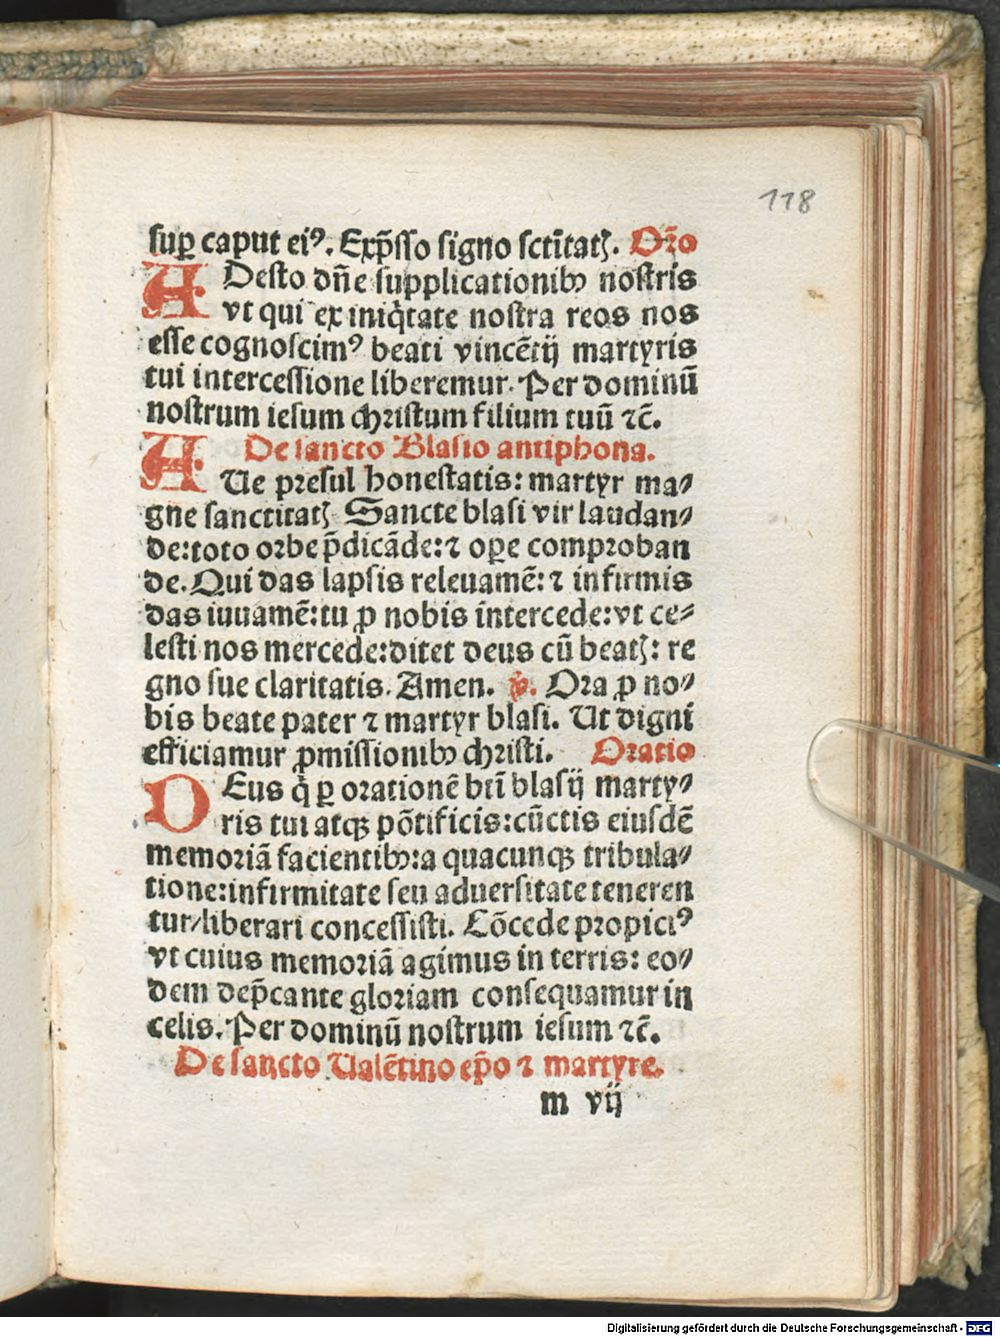 118
sup̲ caput eiꝰ. Exp̄sso signo sctītatꝭ. Or̄o
ADesto dn̄e supplicationibꝫ nostris
vt qui ex iniq̇tate nostra reos nos
esse cognoscimꝰ beati vincētij martyris
tui intercessione liberemur. Per dominū
nostrum iesum christum filium tuū ⁊c̄.
De sancto Blasio antiphona.
AUe presul honestatis: martyr ma⸗
gne sanctitatꝭ Sancte blasi vir laudan⸗
de: toto orbe p̄dicāde: ⁊ oꝑe comproban
de. Qui das lapsis releuamē: ⁊ infirmis
das iuuamē: tu ꝓ nobis intercede: vt ce⸗
lesti nos mercede: ditet deus cū beatꝭ: re
gno sue claritatis. Amen. ℣. Ora ꝓ no⸗
bis beate pater ⁊ martyr blasi. Ut digni
efficiamur ꝓmissionibꝫ christi. Oratio
DEus q̇ ꝑ orationē btī blasij marty⸗
ris tui atqꝫ pōtificis: cūctis eiusdē
memoriā facientibꝫ: a quacunqꝫ tribula⸗
tione: infirmitate seu aduersitate teneren
tur/ liberari concessisti. Cōcede propiciꝰ
vt cuius memoriā agimus in terris: eo⸗
dem dep̄cante gloriam consequamur in
celis. Per dominū nostrum iesum ⁊c̄.
De sancto Ualētino ep̄o ⁊ martyre.
m vij
Digitalisierung gefördert durch die Deutsche Forschungsgemeinschaft - DFG